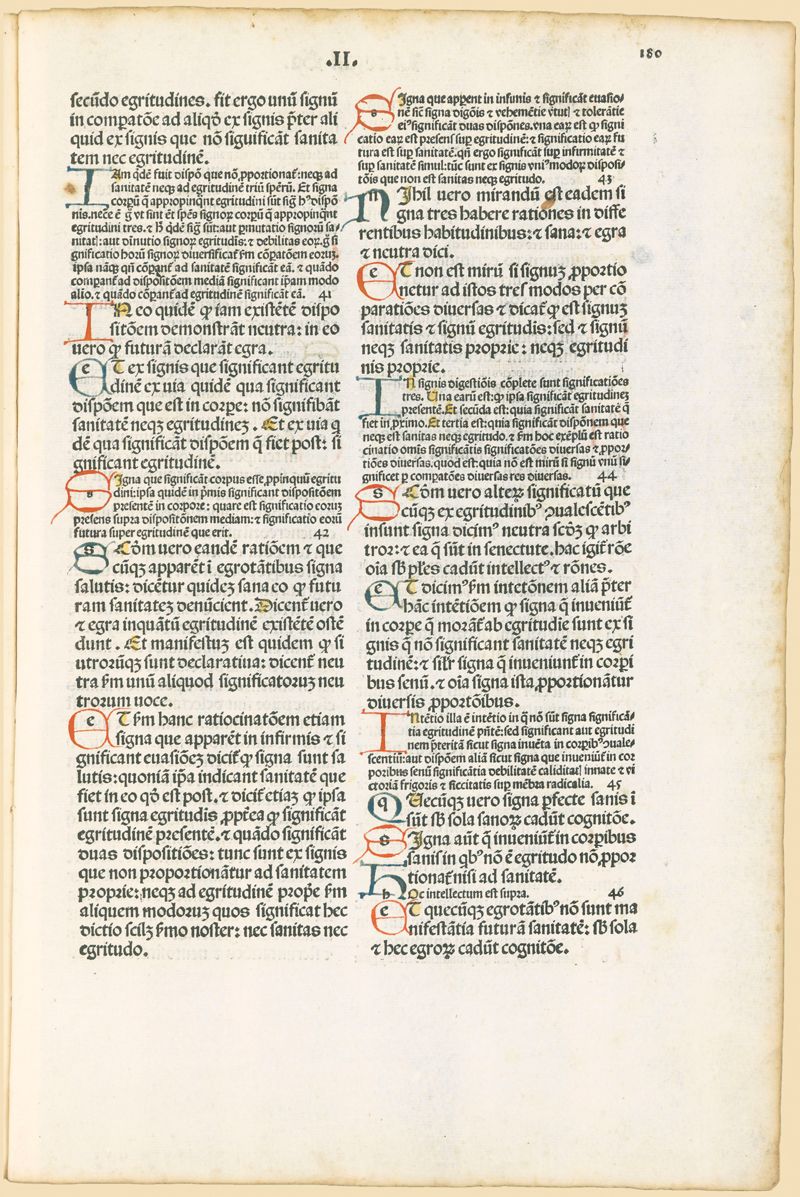 .II.
180
secūdo egritudines. fit ergo unū signū
in compatōe ad aliqō ex signis p̄ter ali
quid ex signis que nō siguificāt sanita
tem nec egritudinē.
Iam qdē fuit dispō que nō ꝓportionať: neqꝫ ad
sanitatē neqꝫ ad egritudinē triū spērū. Et signa
corpꝝ q̄ appropinqnt egritudini sūt sig̃ hꝰ dispō
nis. nece ē g̃ vt sint ēt spēs signoꝝ corpꝝ q̄ appropinq̄nt
egritudini tres. ⁊ hȝ qdē sig̃ sūt: aut pmutatio signorū sa/
nitatꝭ: aut dīnutio signoꝝ egritudīs: ⁊ debilitas eoꝝ. g̃ si
gnificatio horū signoꝝ diuersificať fm cōpatōem eoruꝫ.
ipsa nāqꝫ qñ cōpanť ad sanitatē significāt eā. ⁊ quādo
companť ad dispositōem mediā significant ipam modo
alio. ⁊ quādo cōpanť ad egritudinē significāt eā. 41
IN eo quidē ꝙ iam existētē dispo
sitōem demonstrāt neutra: in eo
uero ꝙ futurā declarāt egra.
eT ex signis que significant egritu
dinē ex uia quidē qua significant
dispōem que est in corpe: nō signifibāt
sanitatē neqꝫ egritudineꝫ. Et ex uia q
dē qua significāt dispōem q̄ fiet post: si
gnificant egritudinē.
sIgna que significāt corpus esse ꝓpinquū egritu
dini: ipsa quidē in p̄mis significant dispositōem
presentē in corpore: quare est significatio eoruꝫ
presens supra dispositōnem mediam: ⁊ significatio eorū
futura super egritudinē que erit. 42
sEcōm uero eandē ratiōem ⁊ que
cūqꝫ apparēt ī egrotātibus signa
salutis: dicētur quideꝫ sana eo ꝙ futu
ram sanitateꝫ denūcient. Dicenť uero
⁊ egra inquātū egritudinē existētē ostē
dunt. Et manifestuꝫ est quidem ꝙ si
utrorūqꝫ sunt declaratiua: dicenť neu
tra fm unū aliquod significatoruꝫ neu
trorum uoce.
eT fm hanc ratiocinatōem etiam
signa que apparēt in infirmis ⁊ si
gnificant euasiōeꝫ diciť ꝙ signa sunt sa
lutis: quoniā ip̄a indicant sanitatē que
fiet in eo qō est post. ⁊ diciť etiaꝫ ꝙ ipsa
sunt signa egritudis ꝓpt̄ea ꝙ significāt
egritudinē presentē. ⁊ quādo significāt
duas dispositiōes: tunc sunt ex signis
que non proportionātur ad sanitatem
proprie: neqꝫ ad egritudinē prop̄e fm
aliquem modoruꝫ quos significat hec
dictio scilꝫ fmo noster: nec sanitas nec
egritudo.
sIgna que appent in infirmis ⁊ significāt euasio/
nē sic̄ signa digōis ⁊ vehemētie v̄tutꝭ ⁊ tolerātie
eiꝰ significāt duas dispōnes. vna eaꝝ est ꝙ signi
catio eaꝝ est presens sup̱ egritudinē: ⁊ significatio eaꝝ fu
tura est sup̱ sanitatē. qñ ergo significāt sup̱ infirmitatē ⁊
sup̱ sanitatēm simul: tūc sunt ex signis vniꝰ modoꝝ disposi-
tōis que non est sanitas neqꝫ egritudo. 43
NIhil uero mirandū est eadem si
gna tres habere rationes in diffe
rentibus habitudinibus: ⁊ sana: ⁊ egra
⁊ neutra dici.
eT non est mirū si signuꝫ ꝓportio
netur ad istos tres modos per cō
paratiōes diuersas ⁊ dicať ꝙ est signuꝫ
sanitatis ⁊ signū egritudis: sed ⁊ signū
neqꝫ sanitatis proprie: neqꝫ egritudi
nis proprie.
IN signis digestiōis cōplete sunt significatiōes
tres. Una earū est: ꝙ ipsa significāt egritudineꝫ
presentē. Et secūda est: quia significāt sanitatē q̄
fiet in ꝓximo. Et tertia est: quia significāt dispōnem que
neqꝫ est sanitas neqꝫ egritudo. ⁊ fm hoc exēplū est ratio
cinatio omīs significatiōis significatōes diuersas ⁊ ꝓpor-
tiōes diuersas. quod est: quia nō est mirū si signū vnū si-
gnificet p compatōes diuersas res diuersas. 44
sEcōm uero alteꝝ significatū que
cūqꝫ ex egritudinibꝰ ꝯualescētibꝰ
insunt signa dicimꝰ neutra scōꝫ ꝙ arbi
tror: ⁊ ea q̄ sūt in senectute. hac igiť rōe
oīa sb̄ pl̄es cadūt intellectꝰ ⁊ rōnes.
eT dicimꝰ fm intetōnem aliā p̄ter
hāc intētiōem ꝙ signa q̄ inueniūť
in corpe q̄ morāť ab egritudie sunt ex si
gnis q̄ nō significant sanitatē neqꝫ egri
tudinē: ⁊ silr̄ signa q̄ inueniunť in corpi
bus senū. ⁊ oīa signa ista ꝓportionātur
diuersis ꝓportōibus.
INtētio illa ē intētio in q̄ nō sūt signa significā-
tia egritudinē pn̄tē: sed significant aut egritudi
nem p̄teritā sicut signa inuēta in corpibꝰ ꝯuale-
scentiū: aut dispōem aliā sicut signa que inueniūť in cor
poribus senū significātia debilitatē caliditatꝭ innate ⁊ vi
ctoriā frigoris ⁊ siccitatis sup̱ mēbra radicalia. 45
qUecūqꝫ uero signa pfecte sanis ī
sūt sb̄ sola sanoꝝ cadūt cognitōe.
sIgna aūt q̄ inueniūť in corpibus
sanis in qbꝰ nō ē egritudo nō ꝓpor
tionať nisi ad sanitatē.
hOc intellectum est supra. 46
eT quecūqꝫ egrotātibꝰ nō sunt ma
nifestātia futurā sanitatē: sb̄ sola
⁊ hec egroꝝ cadūt cognitōe.